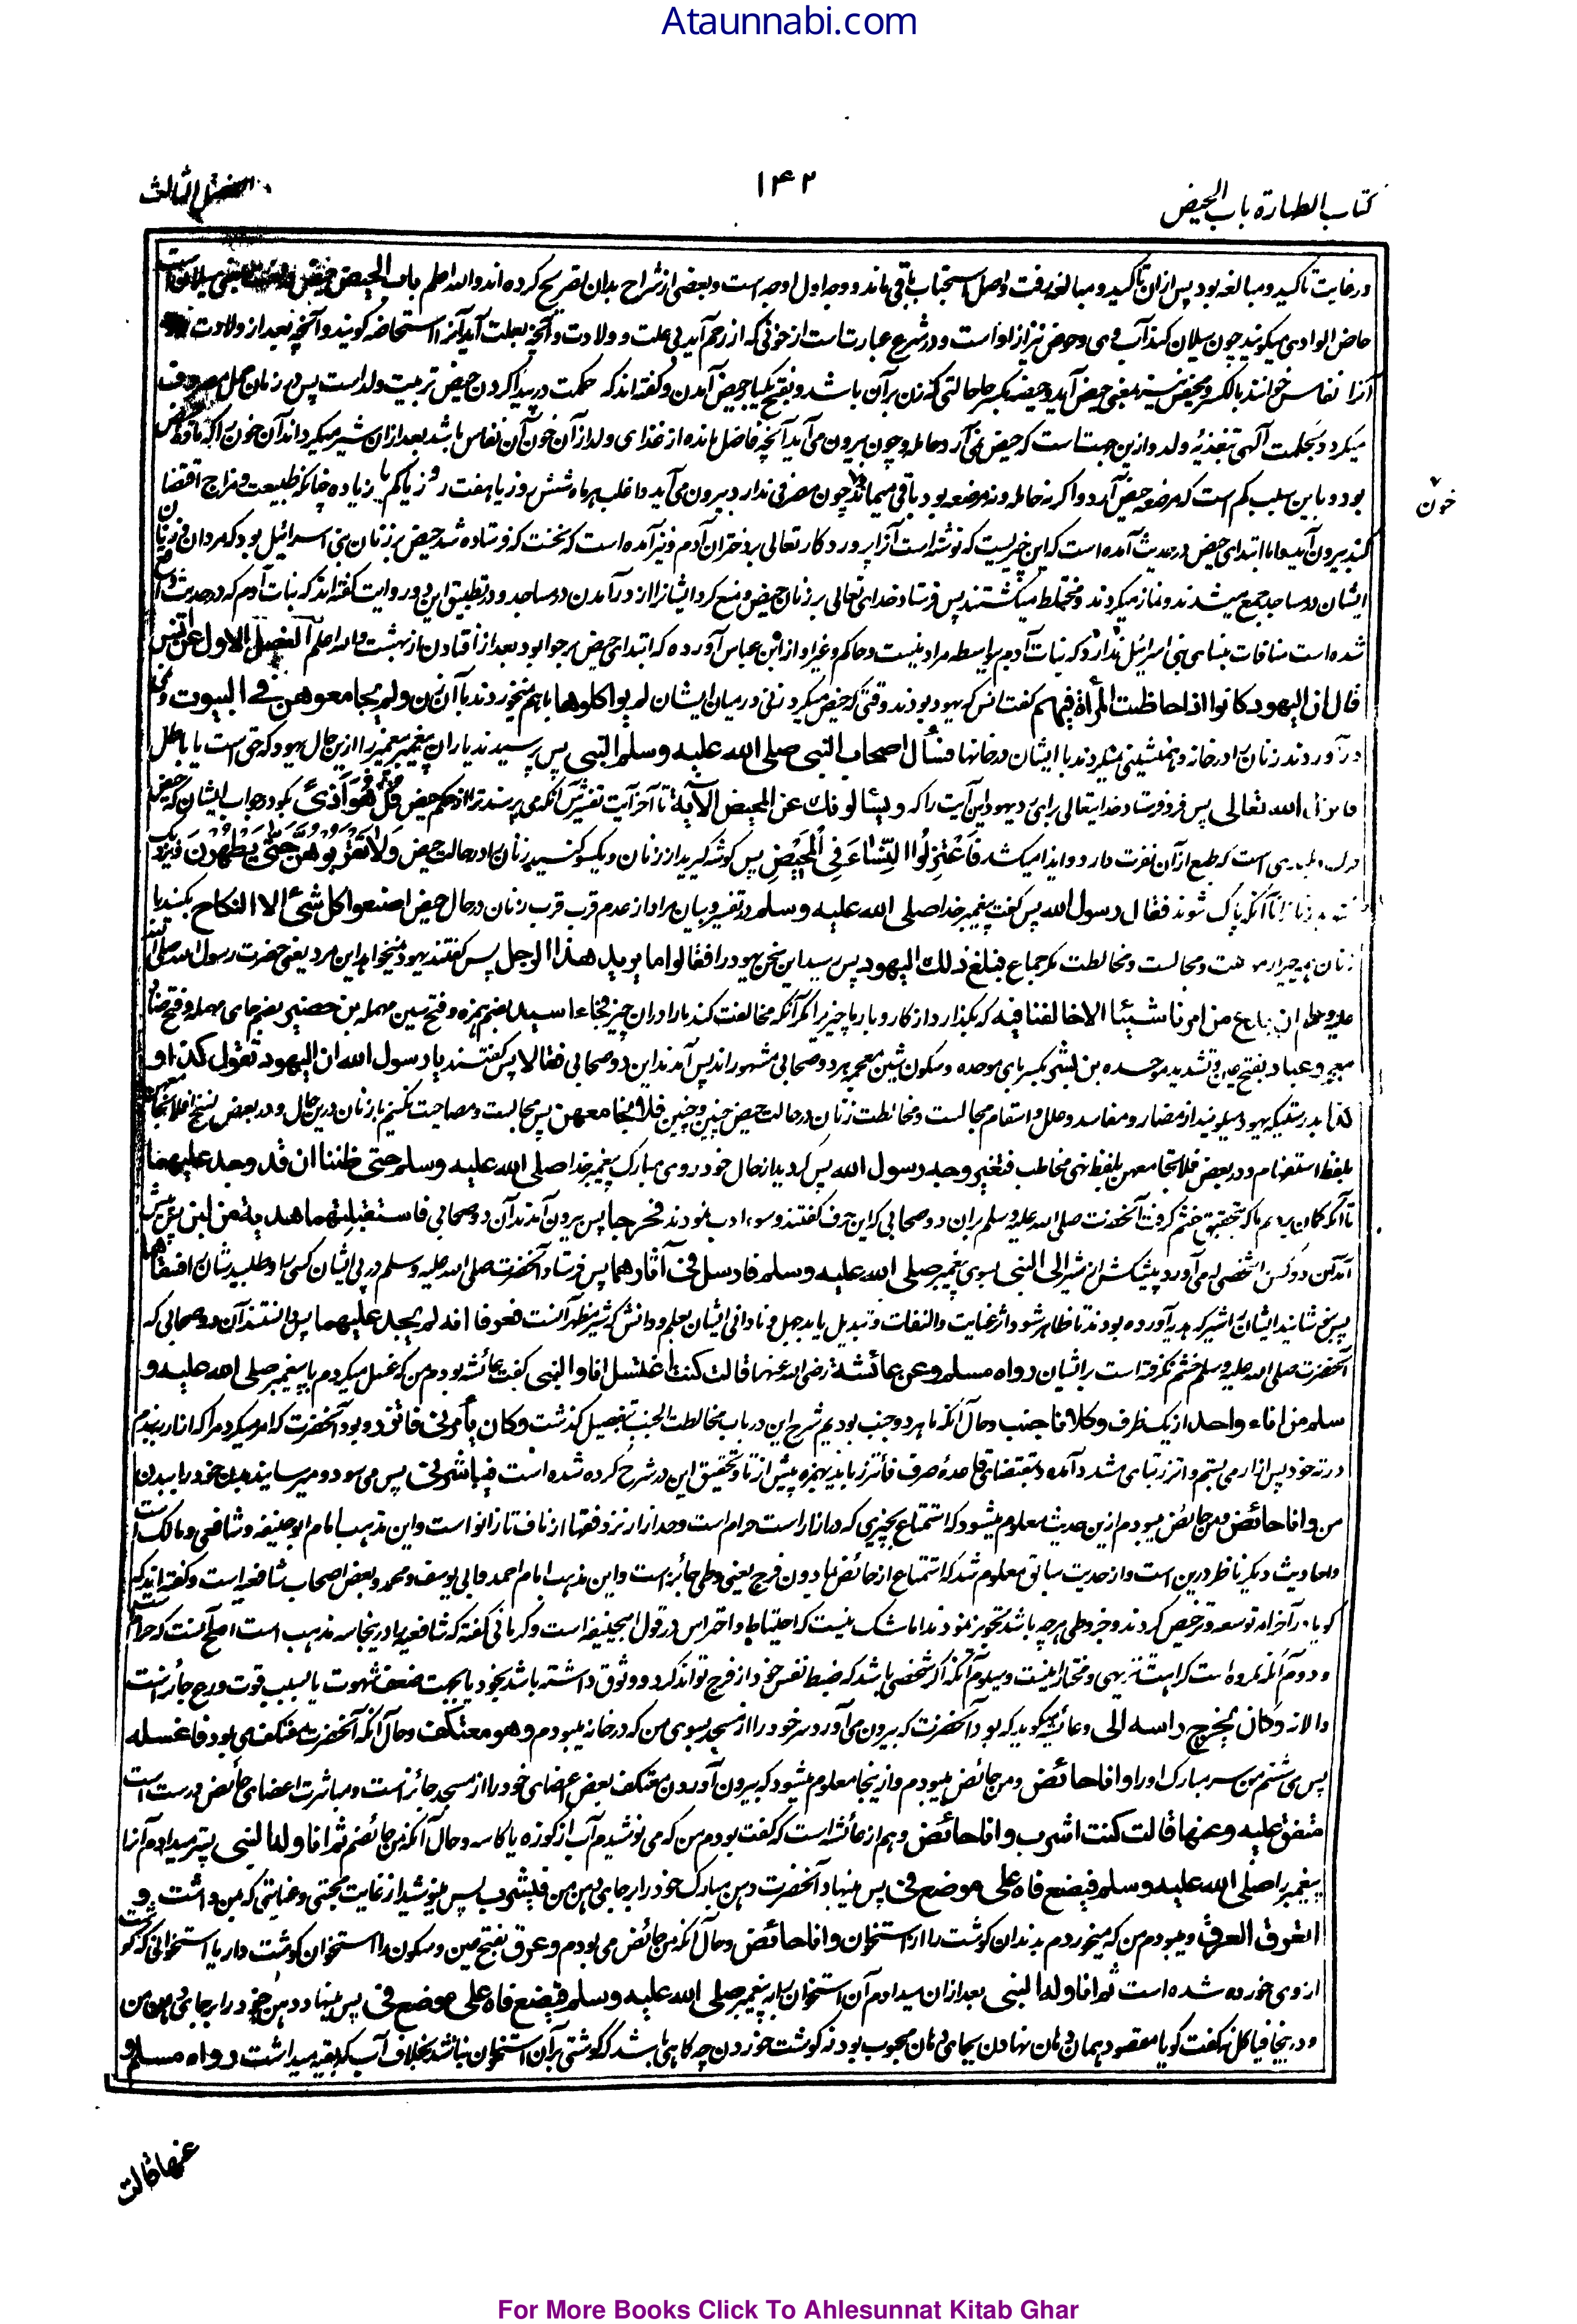 Ataunnabi.com
كتاب الطهارة باب الحيض
۱۴۲
الفصل الثالث
در غایت تاکید و مبالغه بود پس ازان تاکید و مبالغه رفت و اصل استحباب باقی ماند و وجه اول اوجه است و بعضی از شراح بدان تصریح کرده اند والله اعلم باب الحیض حیض
حاض الوادی میگویند چون سیلان کند آب وی و حوض نیز ازان است و در شرع عبارت است از خونی که از رحم آید بی علت و ولادت و آنچه بعلت آید آنرا استحاضه گویند و آنچه بعد از ولادت
آنرا نفاس خوانند بالکسر و محیض نیز بمعنی حیض آید و حیضه بکسر حا حالتی که زن بر آن باشد و بفتح یکبار حیض آمدن و گفته اند که حکمت در پیدا کردن حیض تربیت ولد است پس در زمان حمل مصروف
میگردد بحکمت آلهی بتغذیهٔ ولد و ازین جهت است که حیض نمی آرد حامله و چون بیرون می آید آنچه فاضل مانده از غذای ولد از آن خون آن نفاس باشد بعد ازان شیر میگرداند آن خون را
بود و باین سبب کم است که مرضعه حیض آرد و اگر نه حامله و نه مرضعه بود باقی میماند چون مصرفی ندارد بیرون می آید و اغلب هر ماه شش روز یا هفت روز یا کم یا زیاده چنانکه طبیعت و مزاج اقتضا
خون
کند بیرون آید و اما ابتدای حیض در حدیث آمده است که این چیزیست که نوشته است آنرا پروردگار تعالی بر دختران آدم و نیز آمده است که نخست که فرستاده شد حیض بر زنان بنی اسرائیل بود که مردان و زنان
ایشان در مساجد جمع میشدند و نماز میکردند و مختلط میگشتند پس فرستاد خدای تعالی بر زنان حیض و منع کرد ایشانرا از در آمدن در مساجد و در تطبیق این دو روایت گفته اند که بنات آدم که در حدیث
شده است منافات بنسای بنی اسرائیل ندارد که بنات آدم بواسطه مراد نیست و حاکم و غیر او از ابن عباس آورده که ابتدای حیض بر حوا بود بعد از افتادن از بهشت والله اعلم الفصل الاول عن انس
قال ان اليهود كانوا اذا حاضت المرأة فيهم گفت انس که یهود بودند وقتی که حیض میکرد زنی در میان ایشان لم يواكلوها با هم نمیخوردند با آن زن ولم يجامعوهن في البيوت و
در آوردند زنان را در خانه و همنشینی نمیکردند با ایشان در خانها فسأل اصحاب النبي صلى الله عليه وسلم النبي پس پرسیدند یاران پیغمبر پیغمبر را ازین حال یهود که حق است یا باطل
فانزل الله تعالى پس فرو فرستاد خدایتعالی برای رد یهود این آیت را که ويسئلونك عن المحيض الآية تا آخر آیت تفسیرش آنکه می پرسند ترا از حکم حیض قُلْ هُوَ أَذًى بگو در جواب ایشان که حیض
است که طبع از آن نفرت دارد و ایذا میکشد فَاعْتَزِلُوا النِّسَاءَ فِي الْمَحِيضِ پس گوشه گیرید از زنان و یکسو کنید زنان را در حالت حیض وَلَا تَقْرَبُوهُنَّ حَتَّى يَطْهُرْنَ
تا آنکه پاک شوند فقال رسول الله پس گفت پیغمبر خدا صلى الله عليه وسلم در تفسیر و بیان مراد از عدم قرب قرب زنان در حال حیض اصنعوا كل شئ الا النكاح بکنید با
زنان همه چیز از و مجالست و مخالطت مگر جماع فبلغ ذلك اليهود پس رسید این سخن یهود را فقالوا ما يريد هذا الرجل پس گفتند یهود نمیخواهد این مرد یعنی حضرت رسول الله صلى الله
عليه وسلم ان يدع من امرنا شيئا الا خالفنا فيه که بگذارد از کار و بار ما چیزی را مگر آنکه مخالفت کند ما را دران چیز فجاء اسيد بضم همزه و فتح سین مهمله بن حضير بضم حای مهمله و فتح ضاد
معجمه وعباد بفتح عین و تشدید موحده بن بشر بکسر بای موحده و سکون شین معجمه هر دو صحابی مشهور اند پس آمدند این دو صحابی فقالا پس گفتند يا رسول الله ان اليهود تقول كذا و
كذا بدرستیکه یهود میگویند از مضار و مفاسد و علل و اسقام مجالست و مخالطت زنان در حالت حیض چنین و چنین فلا نجامعهن پس مجالست و مصاحبت نکنیم با زنان درین حال و در بعض نسخ
بلفظ استفهام و در بعض فلا تجامعهن بلفظ نهی مخاطب فتغير وجه رسول الله پس گردید از حال خود روی مبارک پیغمبر خدا صلى الله عليه وسلم حتى ظننا ان قد وجد عليهما
تا آنکه گمان بردیم ما که بتحقیق خشم گرفت آنحضرت صلى الله عليه وسلم بران دو صحابی که این حرف گفتند و سوء ادب نمودند فخرجا پس بیرون آمدند آن دو صحابی فاستقبلتهما هدية من لبن پس پیش
آمد آن دو کس را شخصی که می آورد پیشکش از شیر الى النبي بسوی پیغمبر صلى الله عليه وسلم فارسل في آثارهما پس فرستاد آنحضرت صلى الله عليه وسلم در پی ایشان کسی را و طلبید ایشانرا فسقاهما
پس بخشانید ایشان را شیر که هدیه آورده بودند تا ظاهر شود اثر عنایت و التفات و تبدیل یابد جهل و نادانی ایشان بعلم و دانش که شیر مظهر آنست فعرفا انه لم يجد عليهما پس دانستند آن دو صحابی که
آنحضرت صلى الله عليه وسلم خشم نگرفته است بر ایشان رواه مسلم وعن عائشة رضي الله عنها قالت كنت اغتسل انا والنبي گفت عائشه بودم من که غسل میکردم با پیغمبر صلى الله عليه و
سلم من اناء واحد از یک ظرف وكلانا جنب و حال آنکه ما هر دو جنب بودیم شرح این در باب مخالطت الجنب بتفصیل گذشت وكان يأمرني فاتزر و بود آنحضرت که امر میکرد مرا که ازار ببندم
در ته خود پس ازار می بستم و اتزر بتای مشدد آمده و بمقتضای قاعدهٔ صرف فأتزر باید بهمزه پیش از تا و تحقیق این در شرح کرده شده است فيباشرني پس می سود و میرسانید بدن خود را ببدن
من وانا حائض و من حائض میبودم ازین حدیث معلوم میشود که استمتاع بچیزی که در ازار است حرام است و حد ازار نزد فقها از ناف تا زانو است و این مذهب امام ابو حنیفه و شافعی و مالک است
و احادیث دیگر ناظر درین است و از حدیث سابق معلوم شد که استمتاع از حائض بما دون فرج یعنی وطی جائز است و این مذهب امام احمد و ابی یوسف و محمد و بعض اصحاب شافعیه است و گفته اند که
گویا در آخر امر توسعه و ترخیص کردند و جز وطی هر چه باشد تجویز نمودند اما شک نیست که احتیاط و احتراس در قول ابحنیفه است و کرمانی گفته که شافعیه را درینجا سه مذهب است اصح آنست که حرام است
و دوم آنکه مکروه است کراهت تنزیهی و مختار اینست و سیوم آنکه اگر شخصی باشد که ضبط نفس خود از فرج تواند کرد و وثوق داشته باشد بخود یا بجهت ضعف شهوت یا بسبب قوت ورع جائز است
والا نه وكان يخرج راسه الى و عائشه میگوید که بود آنحضرت که بیرون می آورد سر خود را از مسجد بسوی من که در خانه میبودم وهو معتكف و حال آنکه آنحضرت معتکف می بود فاغسله
پس می شستم من سر مبارک او را وانا حائض و من حائض میبودم و ازینجا معلوم میشود که بیرون آوردن معتکف بعض اعضای خود را از مسجد جائز است و مباشرت اعضای حائض درست است
متفق عليه وعنها قالت كنت اشرب وانا حائض و هم از عائشه است که گفت بودم من که می نوشیدم آب از کوزه یا کاسه و حال آنکه من حائضم ثم اناوله النبي پستر میدادم آنرا
پیغمبر را صلى الله عليه وسلم فيضع فاه على موضع في پس مینهاد آنحضرت دهن مبارک خود را بر جای دهن من فيشرب پس مینوشید از غایت محبتی و عنایتی که بمن داشت و
اتعرق العرق و میبودم من که میخوردم بدندان گوشت را از استخوان وانا حائض و حال آنکه من حائض می بودم و عرق بفتح عین و سکون را استخوان گوشت دار یا استخوانی که گوشت
از وی خورده شده است ثم اناوله النبي بعد ازان میدادم آن استخوان را به پیغمبر صلى الله عليه وسلم فيضع فاه على موضع في پس مینهاد دهن خود را بر جای دهن من
و درینجا فیاکل نگفت گویا مقصود همان دهان نهادن بجای دهان محبوب بود نه گوشت خوردن چه گاهی باشد که گوشتی بر آن استخوان نباشد بخلاف آب که بقیه میداشت رواه مسلم و
عنها قالت
For More Books Click To Ahlesunnat Kitab Ghar